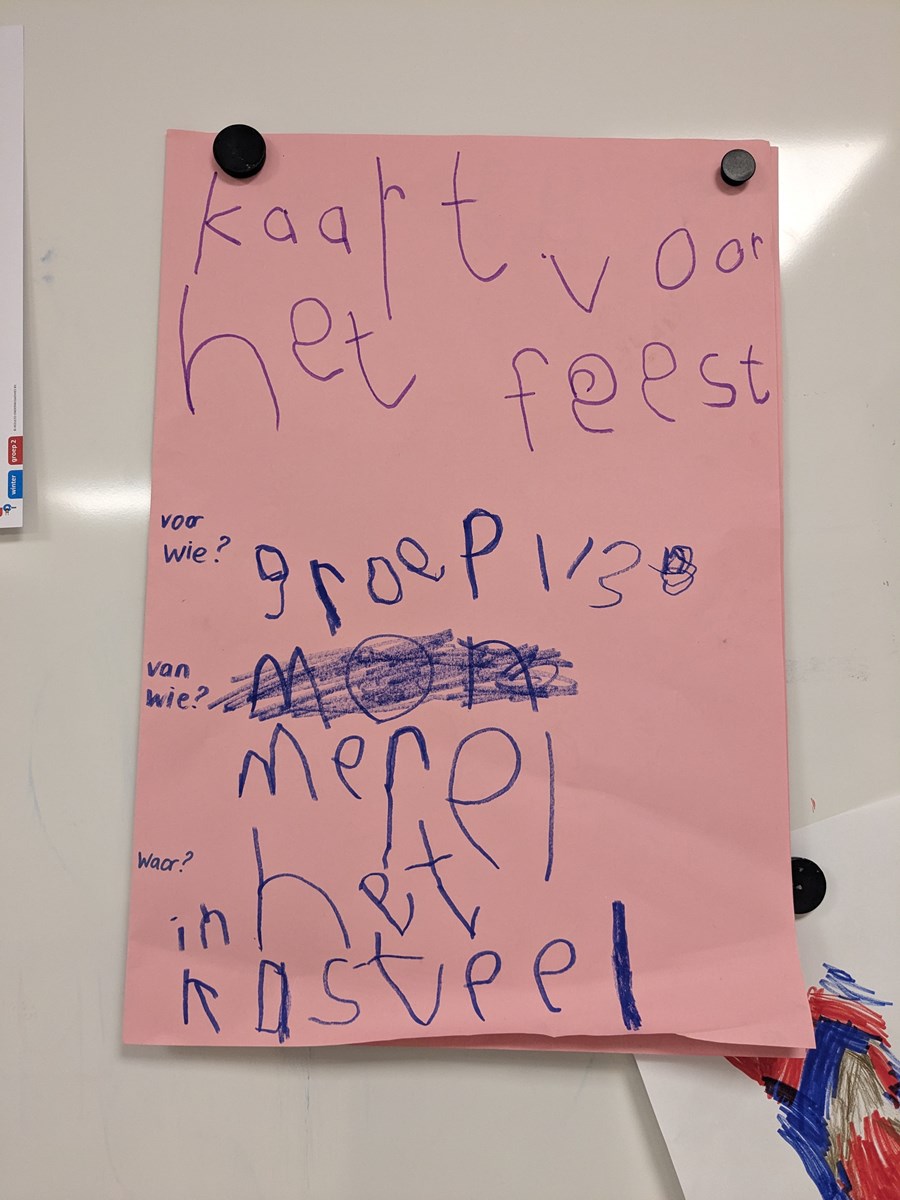 kaart voor
het feest
voor
wie?
groep 1/3
van
wie?
mon
merel
waar?
het
in
kasteel
winter
groep 2